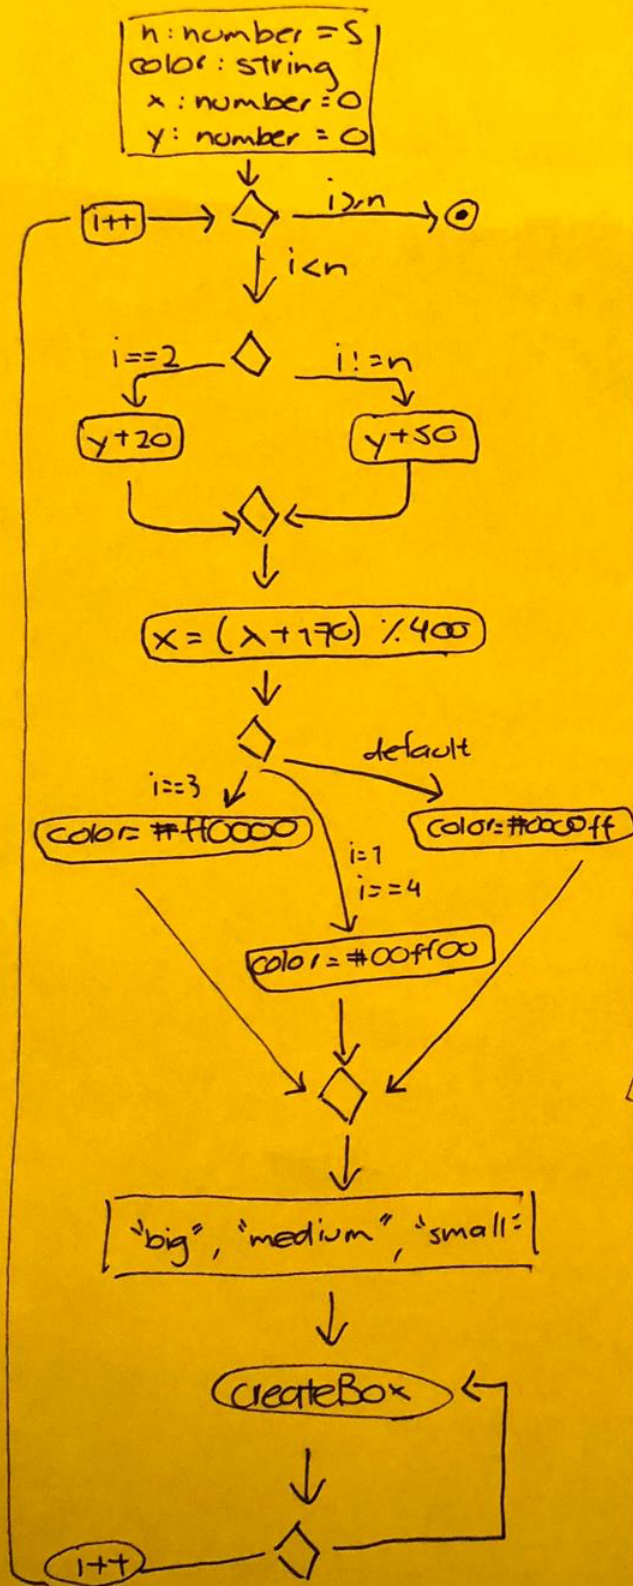 n: number = 5
color: string
x: number = 0
y: number = 0
i++
i≥n
i<n
i==2
i!=n
y+20
y+50
x = (x+170) % 400
default
i==3
color= #ff0000
color=#0000ff
i=1
i==4
color= #00ff00
"big", "medium", "small"
createBox
i++